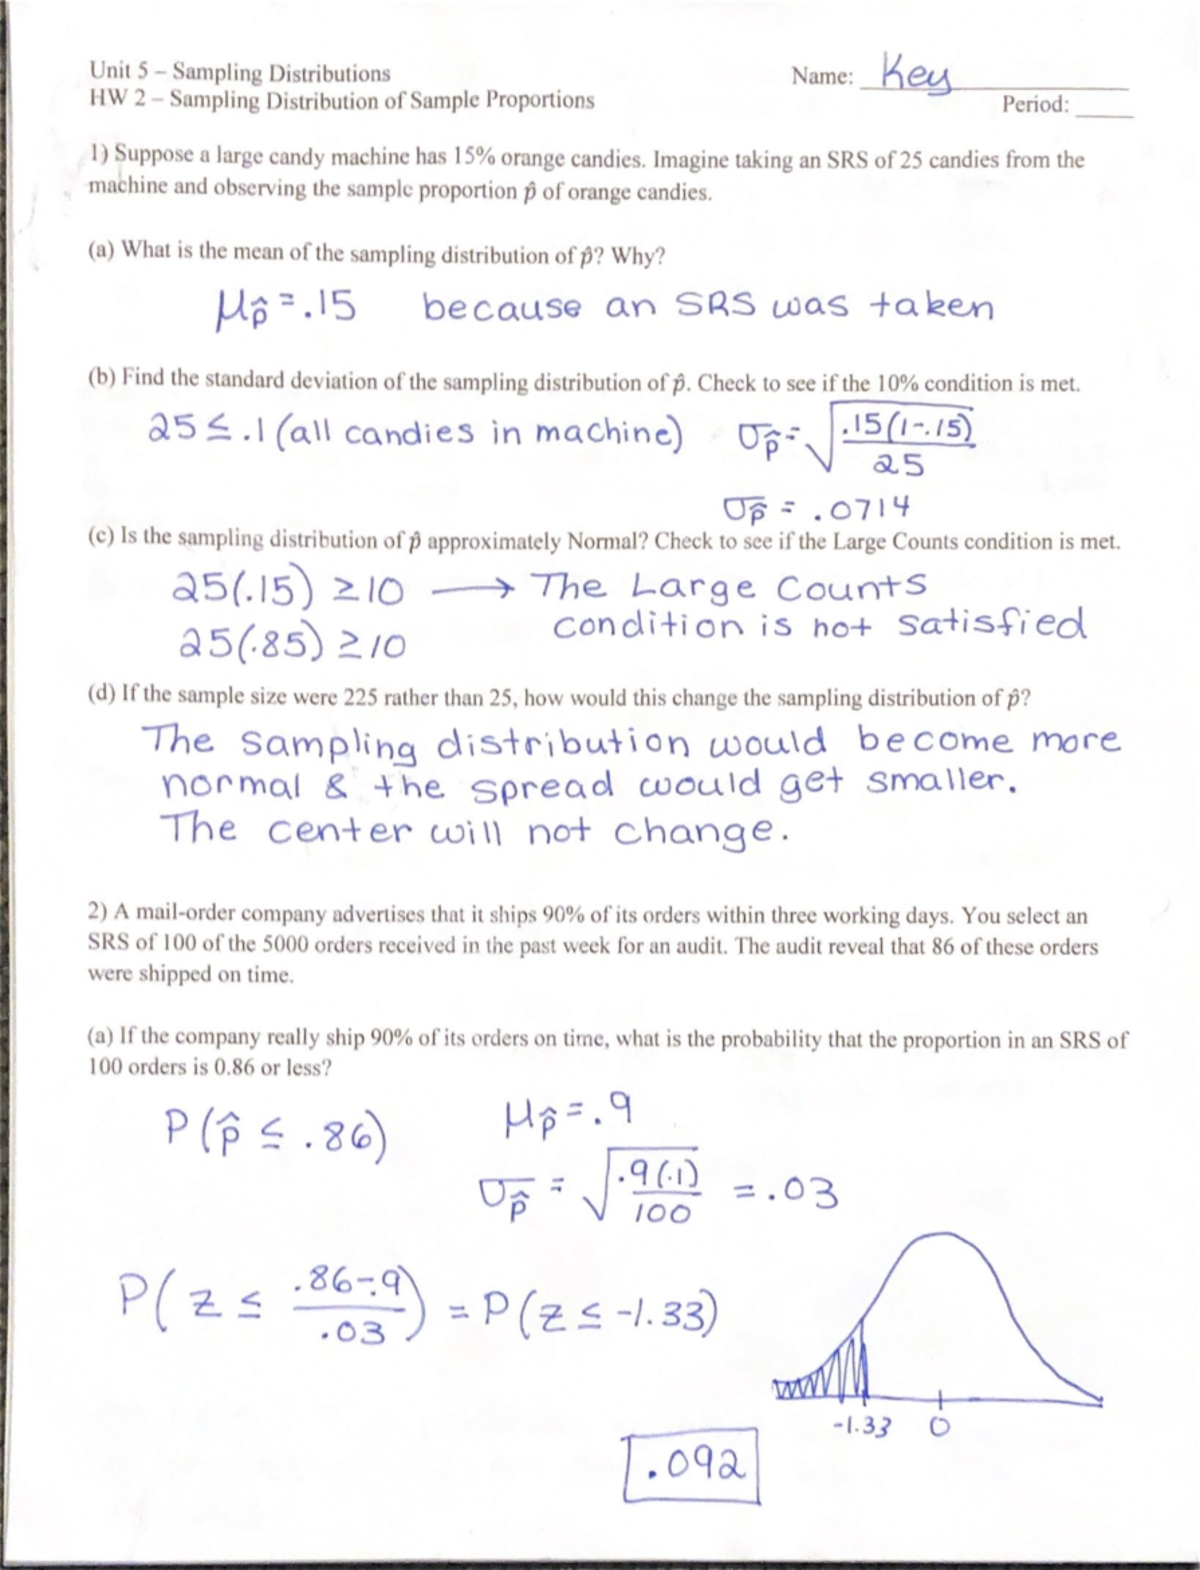 Unit 5 – Sampling Distributions
Name: Key
HW 2 – Sampling Distribution of Sample Proportions
Period: ____
1) Suppose a large candy machine has 15% orange candies. Imagine taking an SRS of 25 candies from the
machine and observing the sample proportion p̂ of orange candies.
(a) What is the mean of the sampling distribution of p̂? Why?
μp̂ = .15 because an SRS was taken
(b) Find the standard deviation of the sampling distribution of p̂. Check to see if the 10% condition is met.
25 ≤ .1 (all candies in machine) σp̂ = √(.15(1-.15)/25)
σp̂ = .0714
(c) Is the sampling distribution of p̂ approximately Normal? Check to see if the Large Counts condition is met.
25(.15) ≥ 10 → The Large Counts
condition is not satisfied
25(.85) ≥ 10
(d) If the sample size were 225 rather than 25, how would this change the sampling distribution of p̂?
The sampling distribution would become more
normal & the spread would get smaller.
The center will not change.
2) A mail-order company advertises that it ships 90% of its orders within three working days. You select an
SRS of 100 of the 5000 orders received in the past week for an audit. The audit reveal that 86 of these orders
were shipped on time.
(a) If the company really ship 90% of its orders on time, what is the probability that the proportion in an SRS of
100 orders is 0.86 or less?
P(p̂ ≤ .86) μp̂ = .9
σp̂ = √(.9(.1)/100) = .03
P(z ≤ (.86-.9)/.03) = P(z ≤ -1.33)
-1.33 0
.092